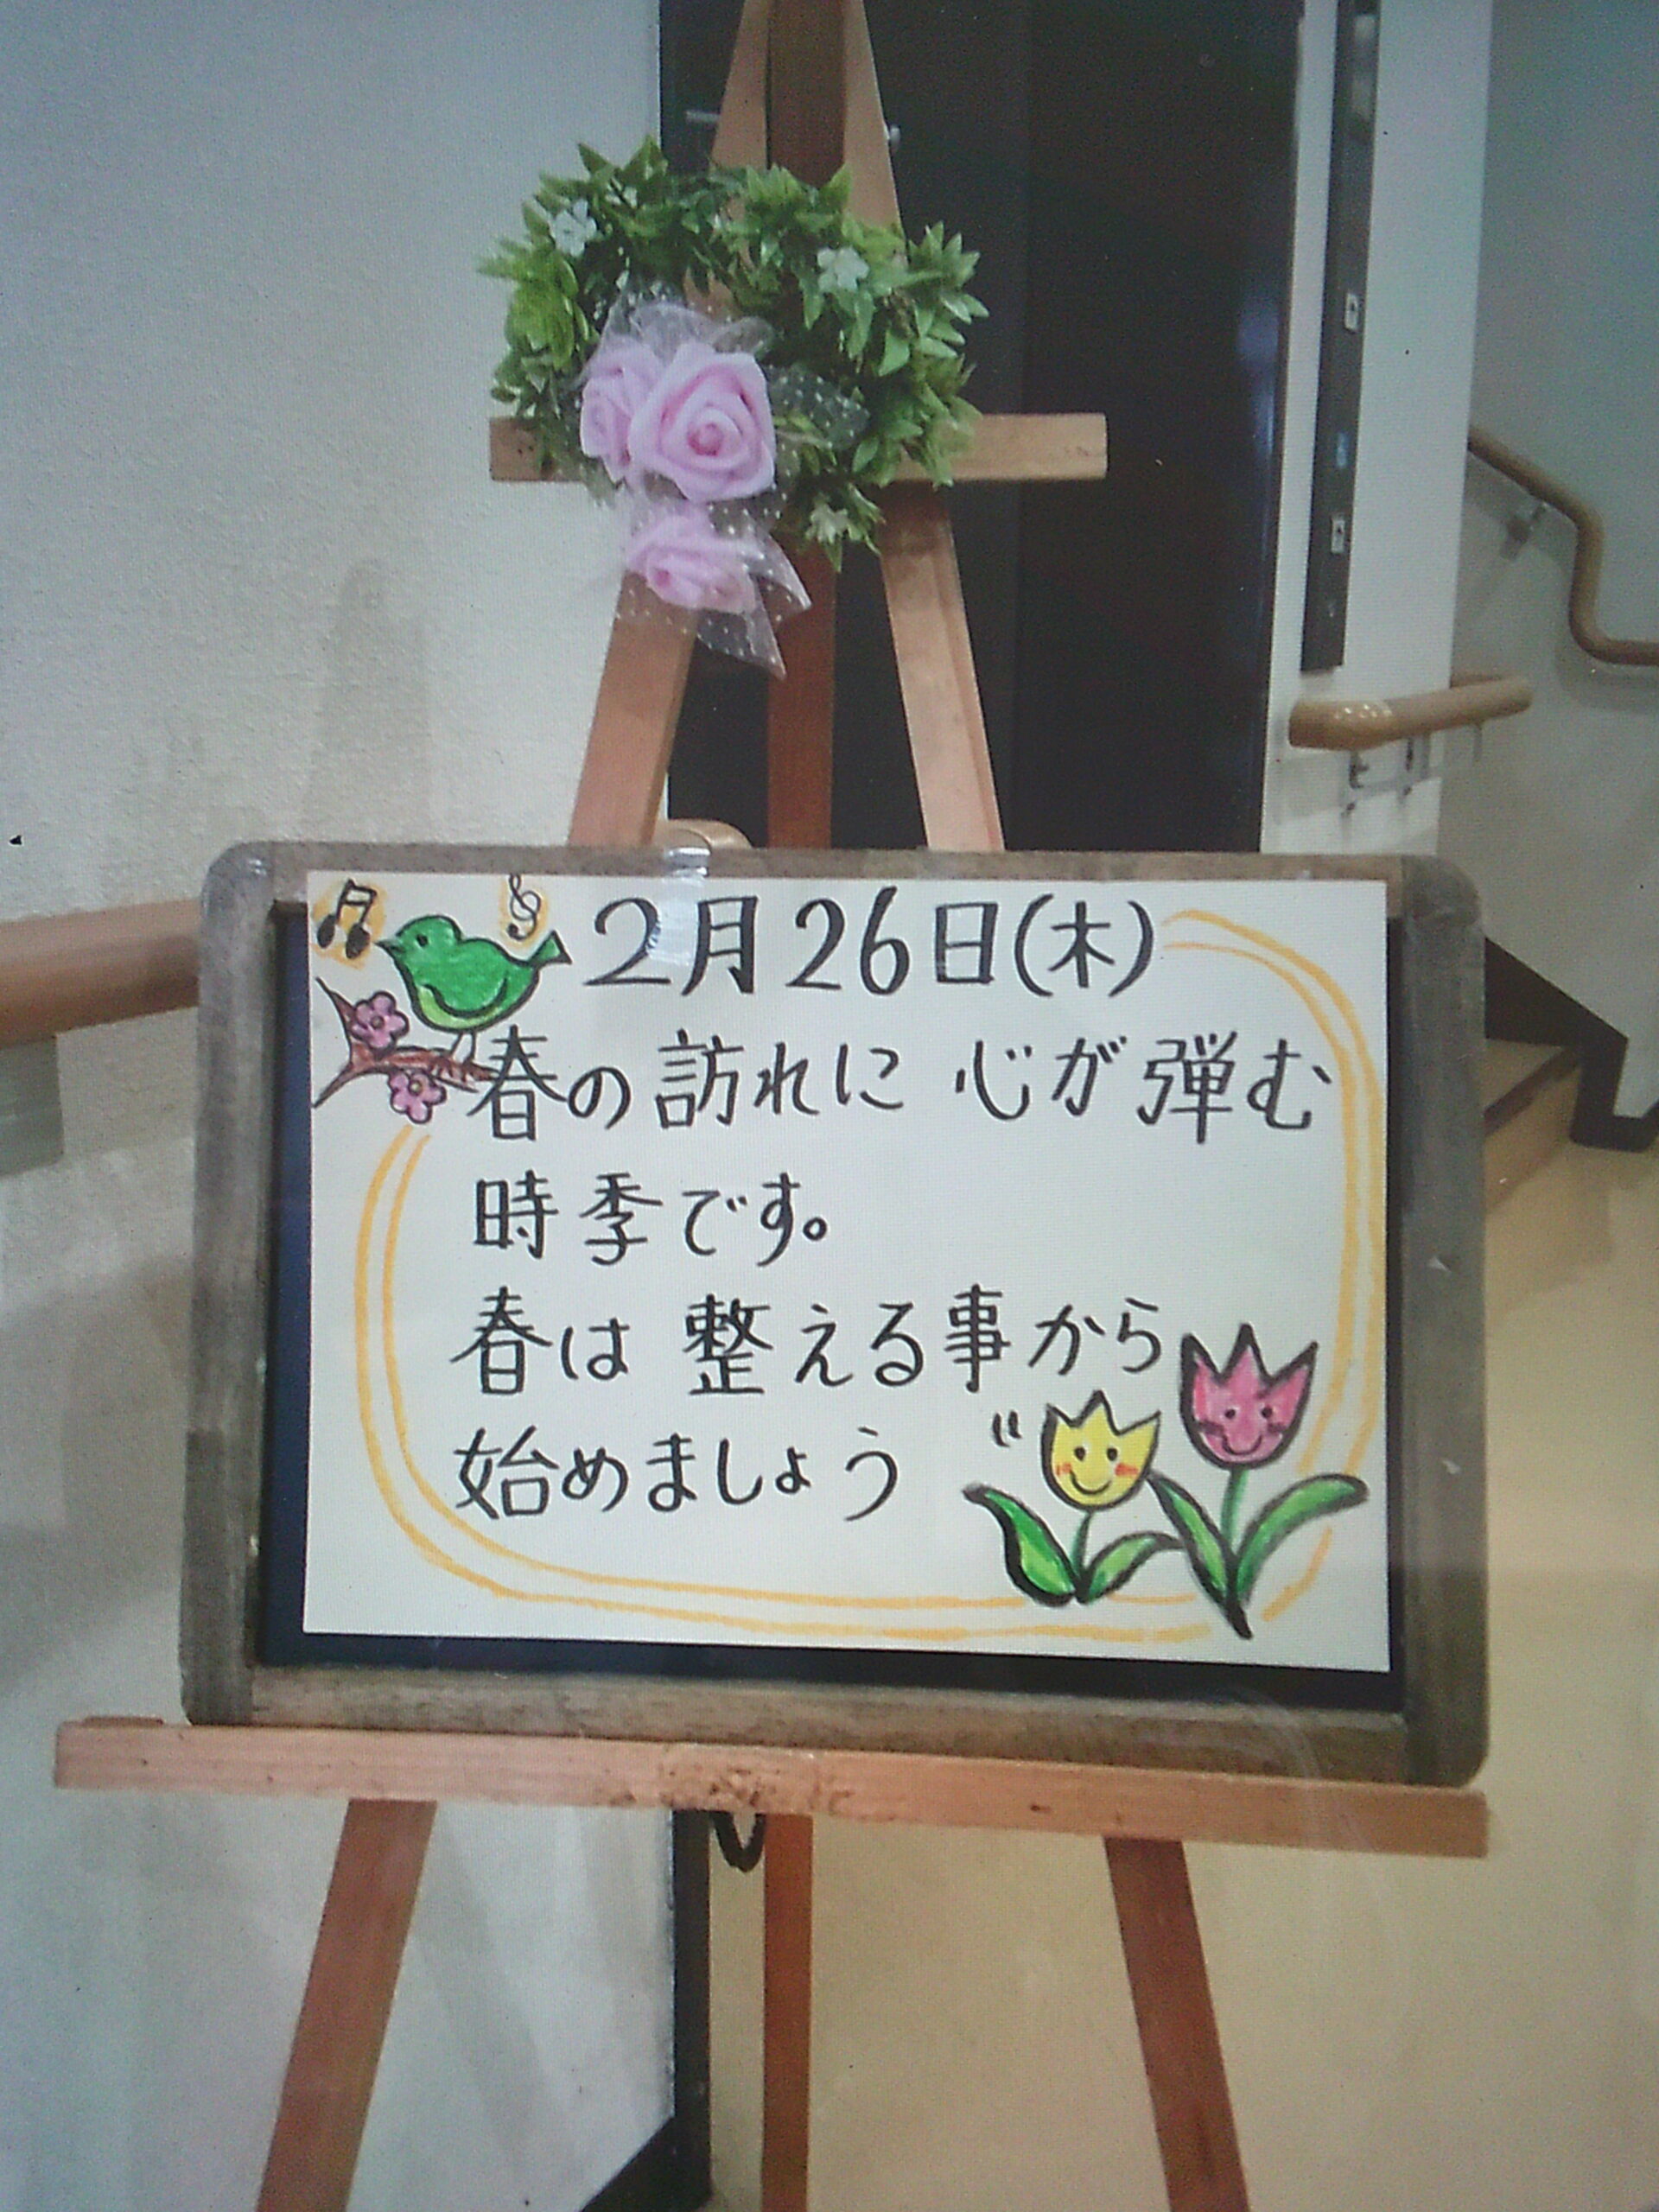 2月26日(木)
春の訪れに 心が弾む
時季です。
春は 整える事から
始めましょう